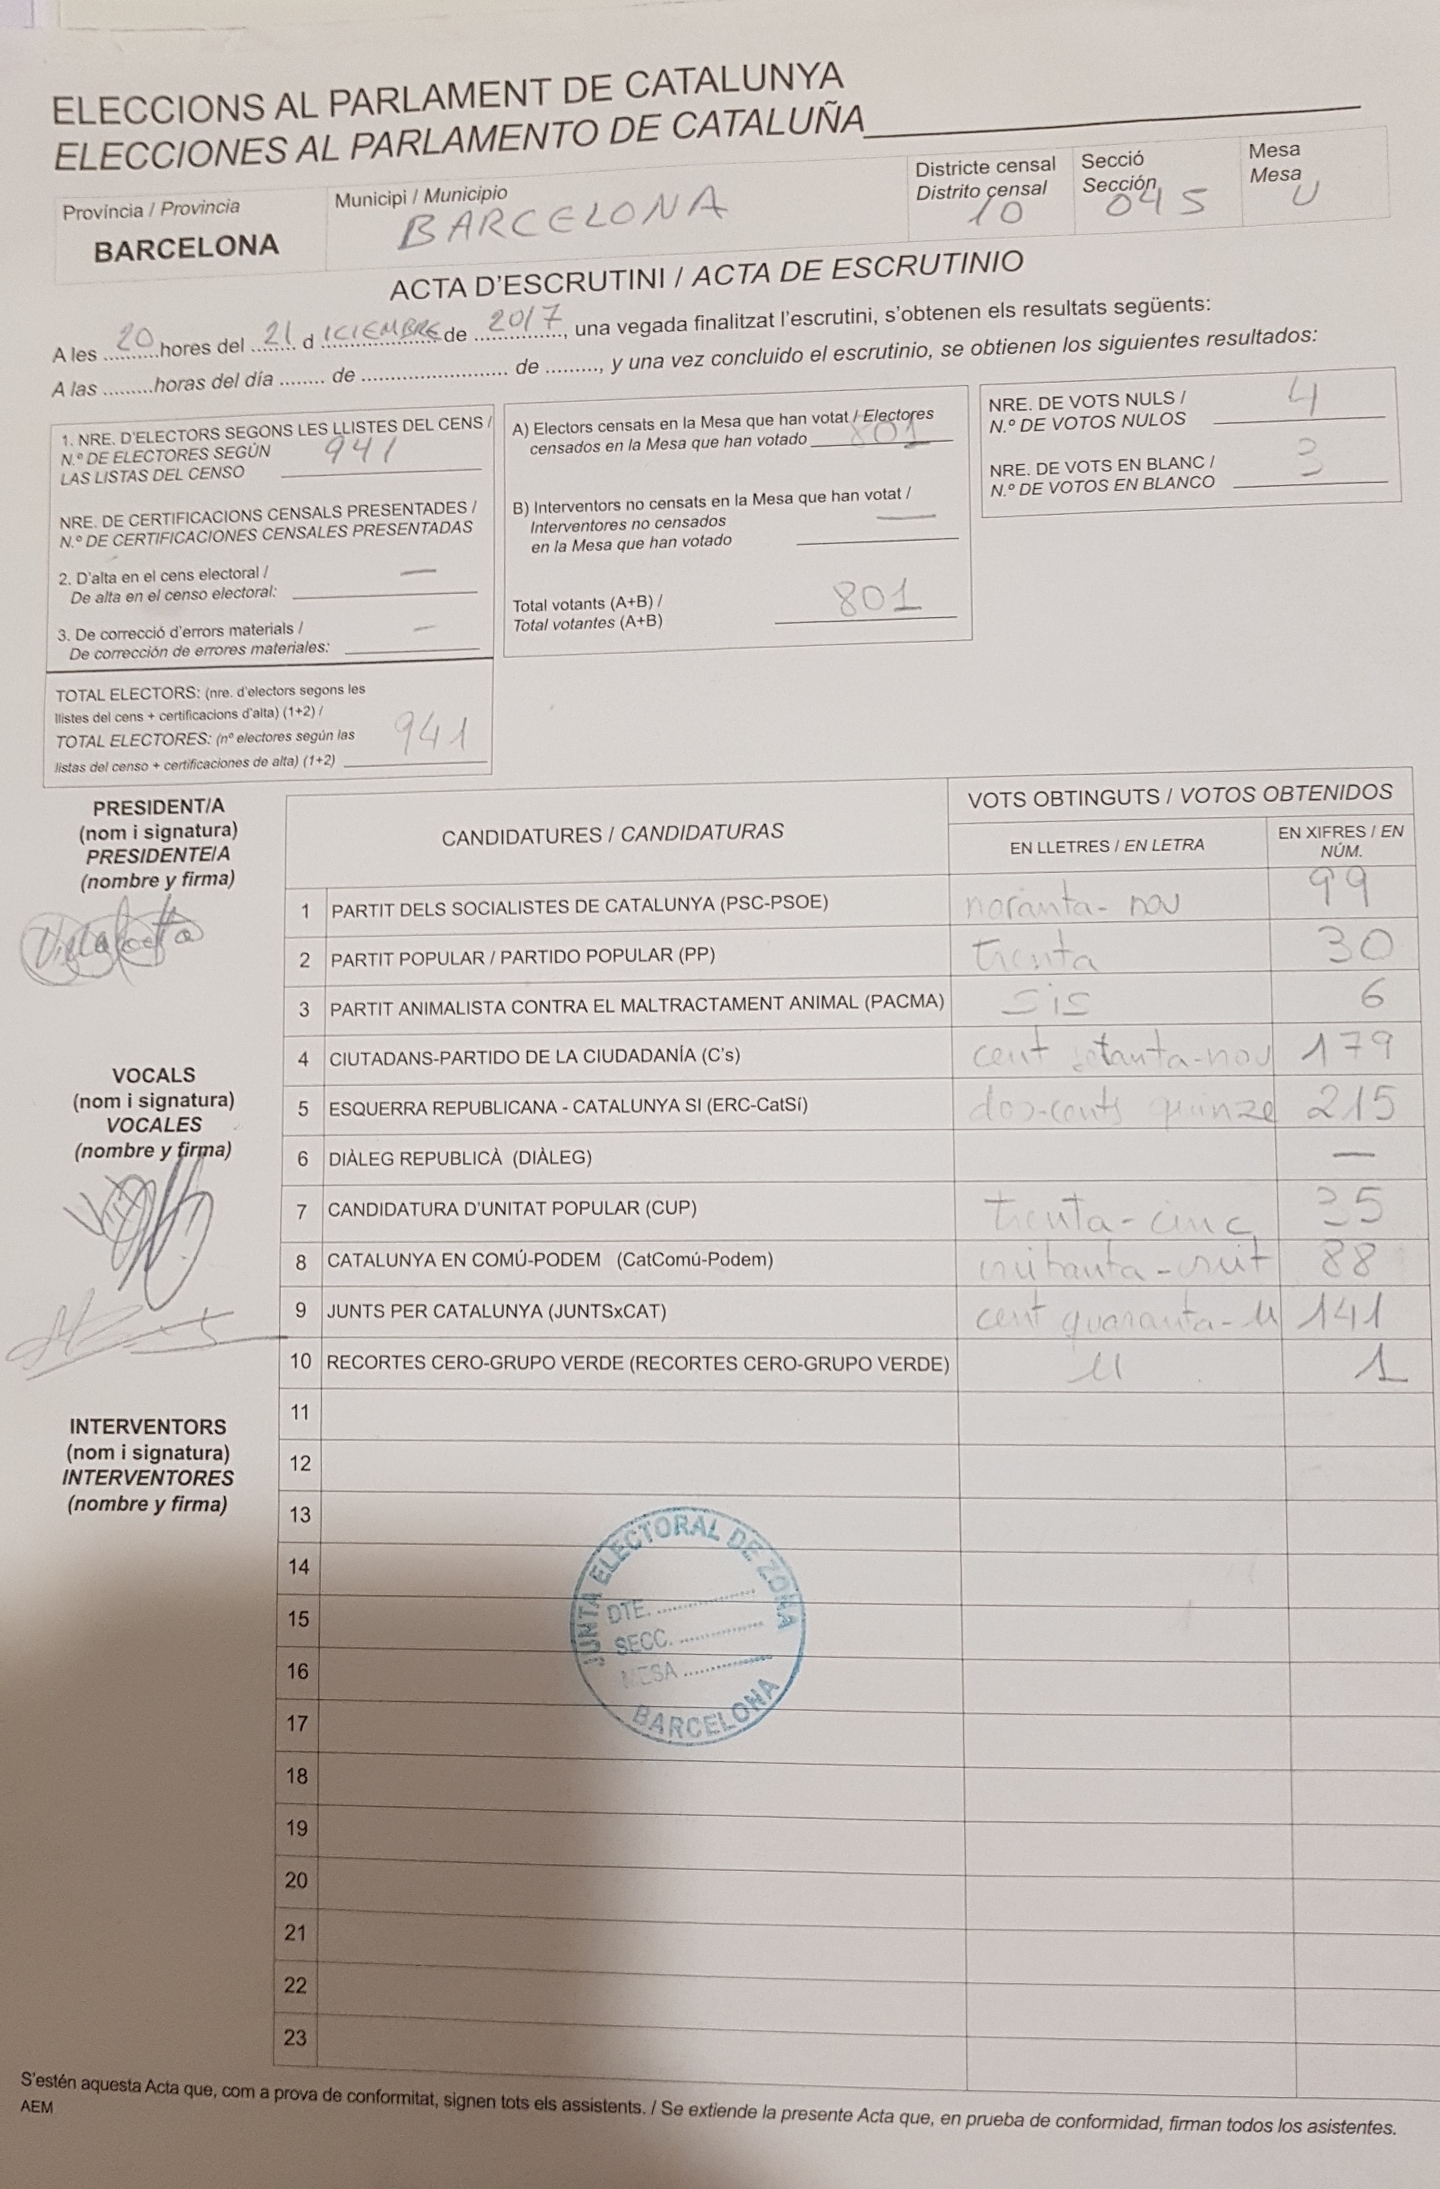 ELECCIONS AL PARLAMENT DE CATALUNYA
ELECCIONES AL PARLAMENTO DE CATALUÑA
Província / Provincia
BARCELONA
Municipi / Municipio
BARCELONA
Districte censal
Distrito censal
10
Secció
Sección
045
Mesa
Mesa
U
ACTA D'ESCRUTINI / ACTA DE ESCRUTINIO
A les 20 hores del 21 d ICIEMBRE de 2017, una vegada finalitzat l'escrutini, s'obtenen els resultats següents:
A las .........horas del día ........ de .......................... de ........., y una vez concluido el escrutinio, se obtienen los siguientes resultados:
1. NRE. D'ELECTORS SEGONS LES LLISTES DEL CENS /
N.º DE ELECTORES SEGÚN
LAS LISTAS DEL CENSO
941
NRE. DE CERTIFICACIONS CENSALS PRESENTADES /
N.º DE CERTIFICACIONES CENSALES PRESENTADAS
2. D'alta en el cens electoral /
De alta en el censo electoral: —
3. De correcció d'errors materials /
De corrección de errores materiales: —
TOTAL ELECTORS: (nre. d'electors segons les
llistes del cens + certificacions d'alta) (1+2) /
TOTAL ELECTORES: (nº electores según las
listas del censo + certificaciones de alta) (1+2)
941
A) Electors censats en la Mesa que han votat / Electores
censados en la Mesa que han votado 801
B) Interventors no censats en la Mesa que han votat /
Interventores no censados
en la Mesa que han votado —
Total votants (A+B) /
Total votantes (A+B)
801
NRE. DE VOTS NULS /
N.º DE VOTOS NULOS
4
NRE. DE VOTS EN BLANC /
N.º DE VOTOS EN BLANCO
3
PRESIDENT/A
(nom i signatura)
PRESIDENTE/A
(nombre y firma)
VOCALS
(nom i signatura)
VOCALES
(nombre y firma)
INTERVENTORS
(nom i signatura)
INTERVENTORES
(nombre y firma)
CANDIDATURES / CANDIDATURAS
VOTS OBTINGUTS / VOTOS OBTENIDOS
EN LLETRES / EN LETRA
EN XIFRES / EN
NÚM.
1 PARTIT DELS SOCIALISTES DE CATALUNYA (PSC-PSOE) noranta-nou 99
2 PARTIT POPULAR / PARTIDO POPULAR (PP) trenta 30
3 PARTIT ANIMALISTA CONTRA EL MALTRACTAMENT ANIMAL (PACMA) sis 6
4 CIUTADANS-PARTIDO DE LA CIUDADANÍA (C's) cent setanta-nou 179
5 ESQUERRA REPUBLICANA - CATALUNYA SI (ERC-CatSí) dos-cents quinze 215
6 DIÀLEG REPUBLICÀ (DIÀLEG) —
7 CANDIDATURA D'UNITAT POPULAR (CUP) trenta-cinc 35
8 CATALUNYA EN COMÚ-PODEM (CatComú-Podem) vuitanta-vuit 88
9 JUNTS PER CATALUNYA (JUNTSxCAT) cent quaranta-u 141
10 RECORTES CERO-GRUPO VERDE (RECORTES CERO-GRUPO VERDE) u 1
11
12
13
14
15
16
17
18
19
20
21
22
23
JUNTA ELECTORAL DE ZONA
DTE. ..............
SECC. ..............
MESA ..............
BARCELONA
S'estén aquesta Acta que, com a prova de conformitat, signen tots els assistents. / Se extiende la presente Acta que, en prueba de conformidad, firman todos los asistentes.
AEM